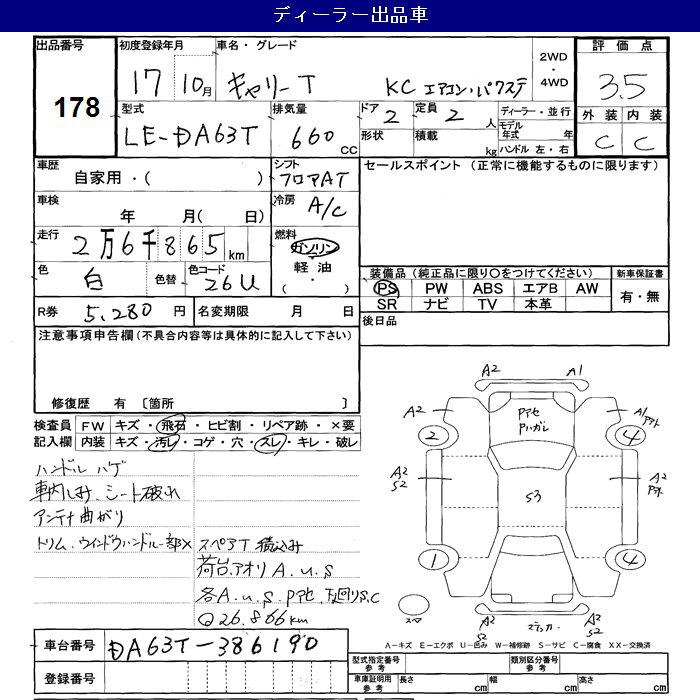 ディーラー出品車
出品番号 178
初度登録年月 17 10月
車名・グレード キャリーT KC エアコン・パワステ
2WD ・ 4WD
評価点 3.5
外装 内装
C C
型式 LE-DA63T
排気量 660 CC
ドア 2
定員 2 人
形状
積載 kg
ディーラー・並行
モデル年式 年
ハンドル 左・右
車歴 自家用・( )
シフト フロアAT
セールスポイント (正常に機能するものに限ります)
車検 年 月( 日)
冷房 A/C
走行 2万6千865 km
燃料 ガソリン
軽油
( ・ )
色 白 色替 色コード 26U
装備品 (純正品に限り○をつけてください)
新車保証書
PS PW ABS エアB AW
SR ナビ TV 本革
有・無
R券 5,280 円
名変期限 月 日
後日品
注意事項申告欄(不具合内容等は具体的に記入して下さい)
修復歴 有 〔箇所 〕
検査員記入欄
FW キズ・飛石・ヒビ割・リペア跡・×要
内装 キズ・汚レ・コゲ・穴・スレ・キレ・破レ
ハンドルハゲ
車内しみ、シート破れ
アンテナ曲がり
トリム、ウインドウハンドル一部×
スペアT積込み
荷台、アオリA.U.S
各A.U.S.Pアセ、下回りS.C
Q26.866km
A2 A1
A2 Pアセ Pハガレ
2 4
A2 S2 S3 A2
1 4
A2 S2 A2 S2
A-キズ E-エクボ U-凹み W-補修跡 S-サビ C-腐食 XX-交換済
車台番号 DA63T-386190
登録番号
型式指定番号 参考
類別区分番号 参考
車庫証明用 参考 長さ cm 幅 cm 高さ cm